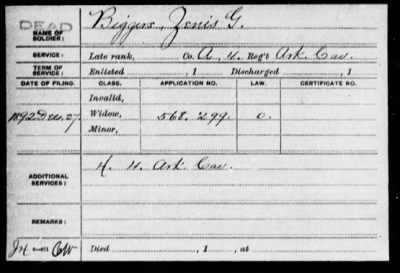 DEAD
NAME OF SOLDIER: Biggers, Zenis G.
SERVICE: Late rank, Co. A, 4, Reg't Ark. Cav.
TERM OF SERVICE: Enlisted , 1 Discharged , 1
DATE OF FILING. CLASS. APPLICATION NO. LAW. CERTIFICATE NO.
Invalid,
1892 Dec. 27 Widow, 568.299. O.
Minor,
ADDITIONAL SERVICES: H. 4. Ark Cav
REMARKS:
Died , 1 , at